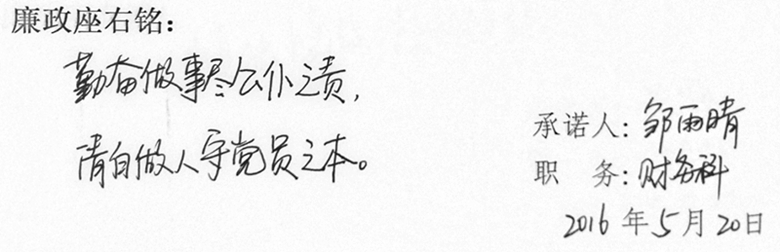 廉政座右铭：
勤奋做事尽公仆之责，
清白做人守党员之本。
承诺人：邹雨晴
职 务：财务科
2016年5月20日